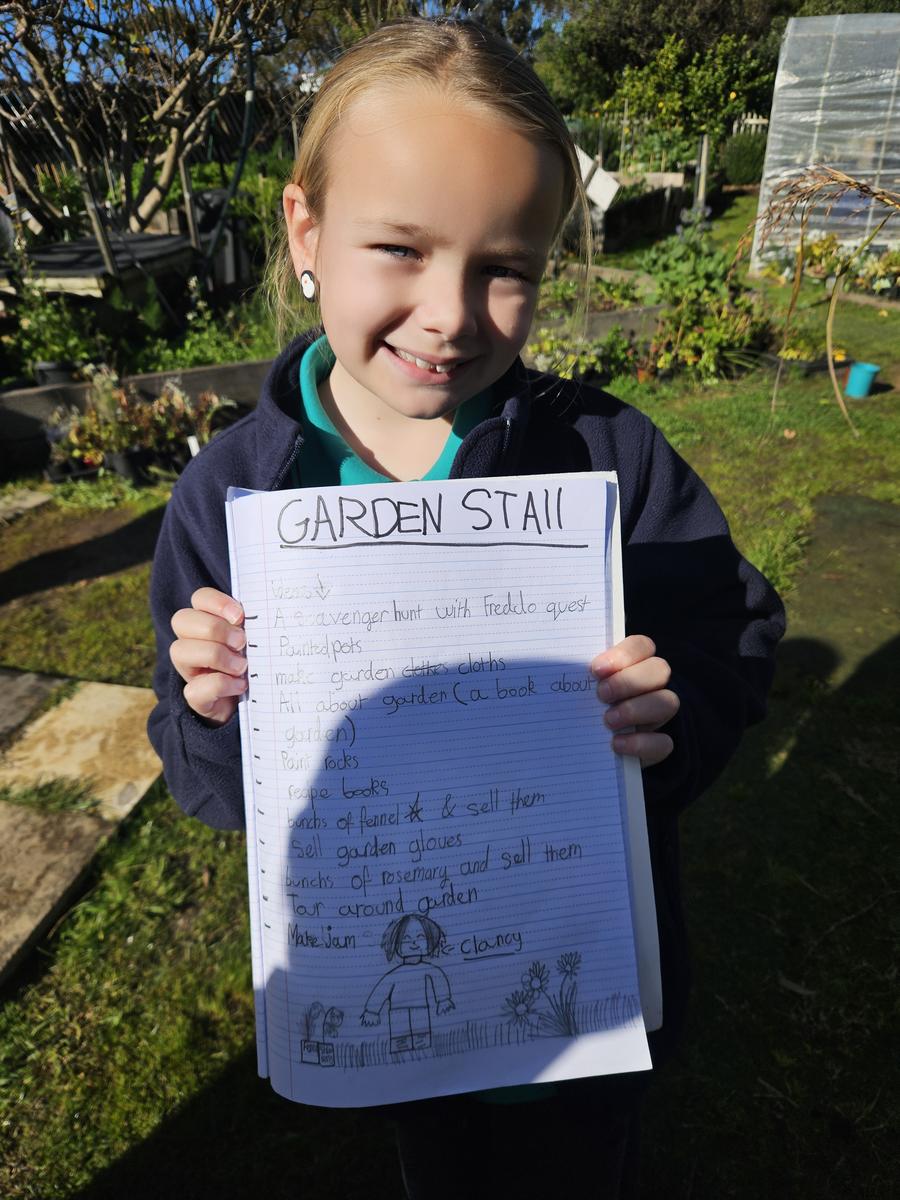 GARDEN STAll
ideas
A scavenger hunt with Freddo quest
Painted pots
make garden clothes cloths
All about garden (a book about
garden)
Paint rocks
recipe books
bunchs of fennel & sell them
Sell garden gloves
bunchs of rosemary and sell them
Tour around garden
Make jam
Clancy